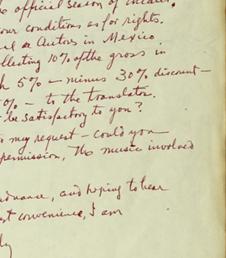 official season of
our conditions as for rights.
Autors in Mexico
llecting 10% of the gross in
5% — minus 30% discount —
% — to the translator.
be satisfactory to you?
my request — could you
permission, the music involved
advance, and hoping to hear
convenience, I am